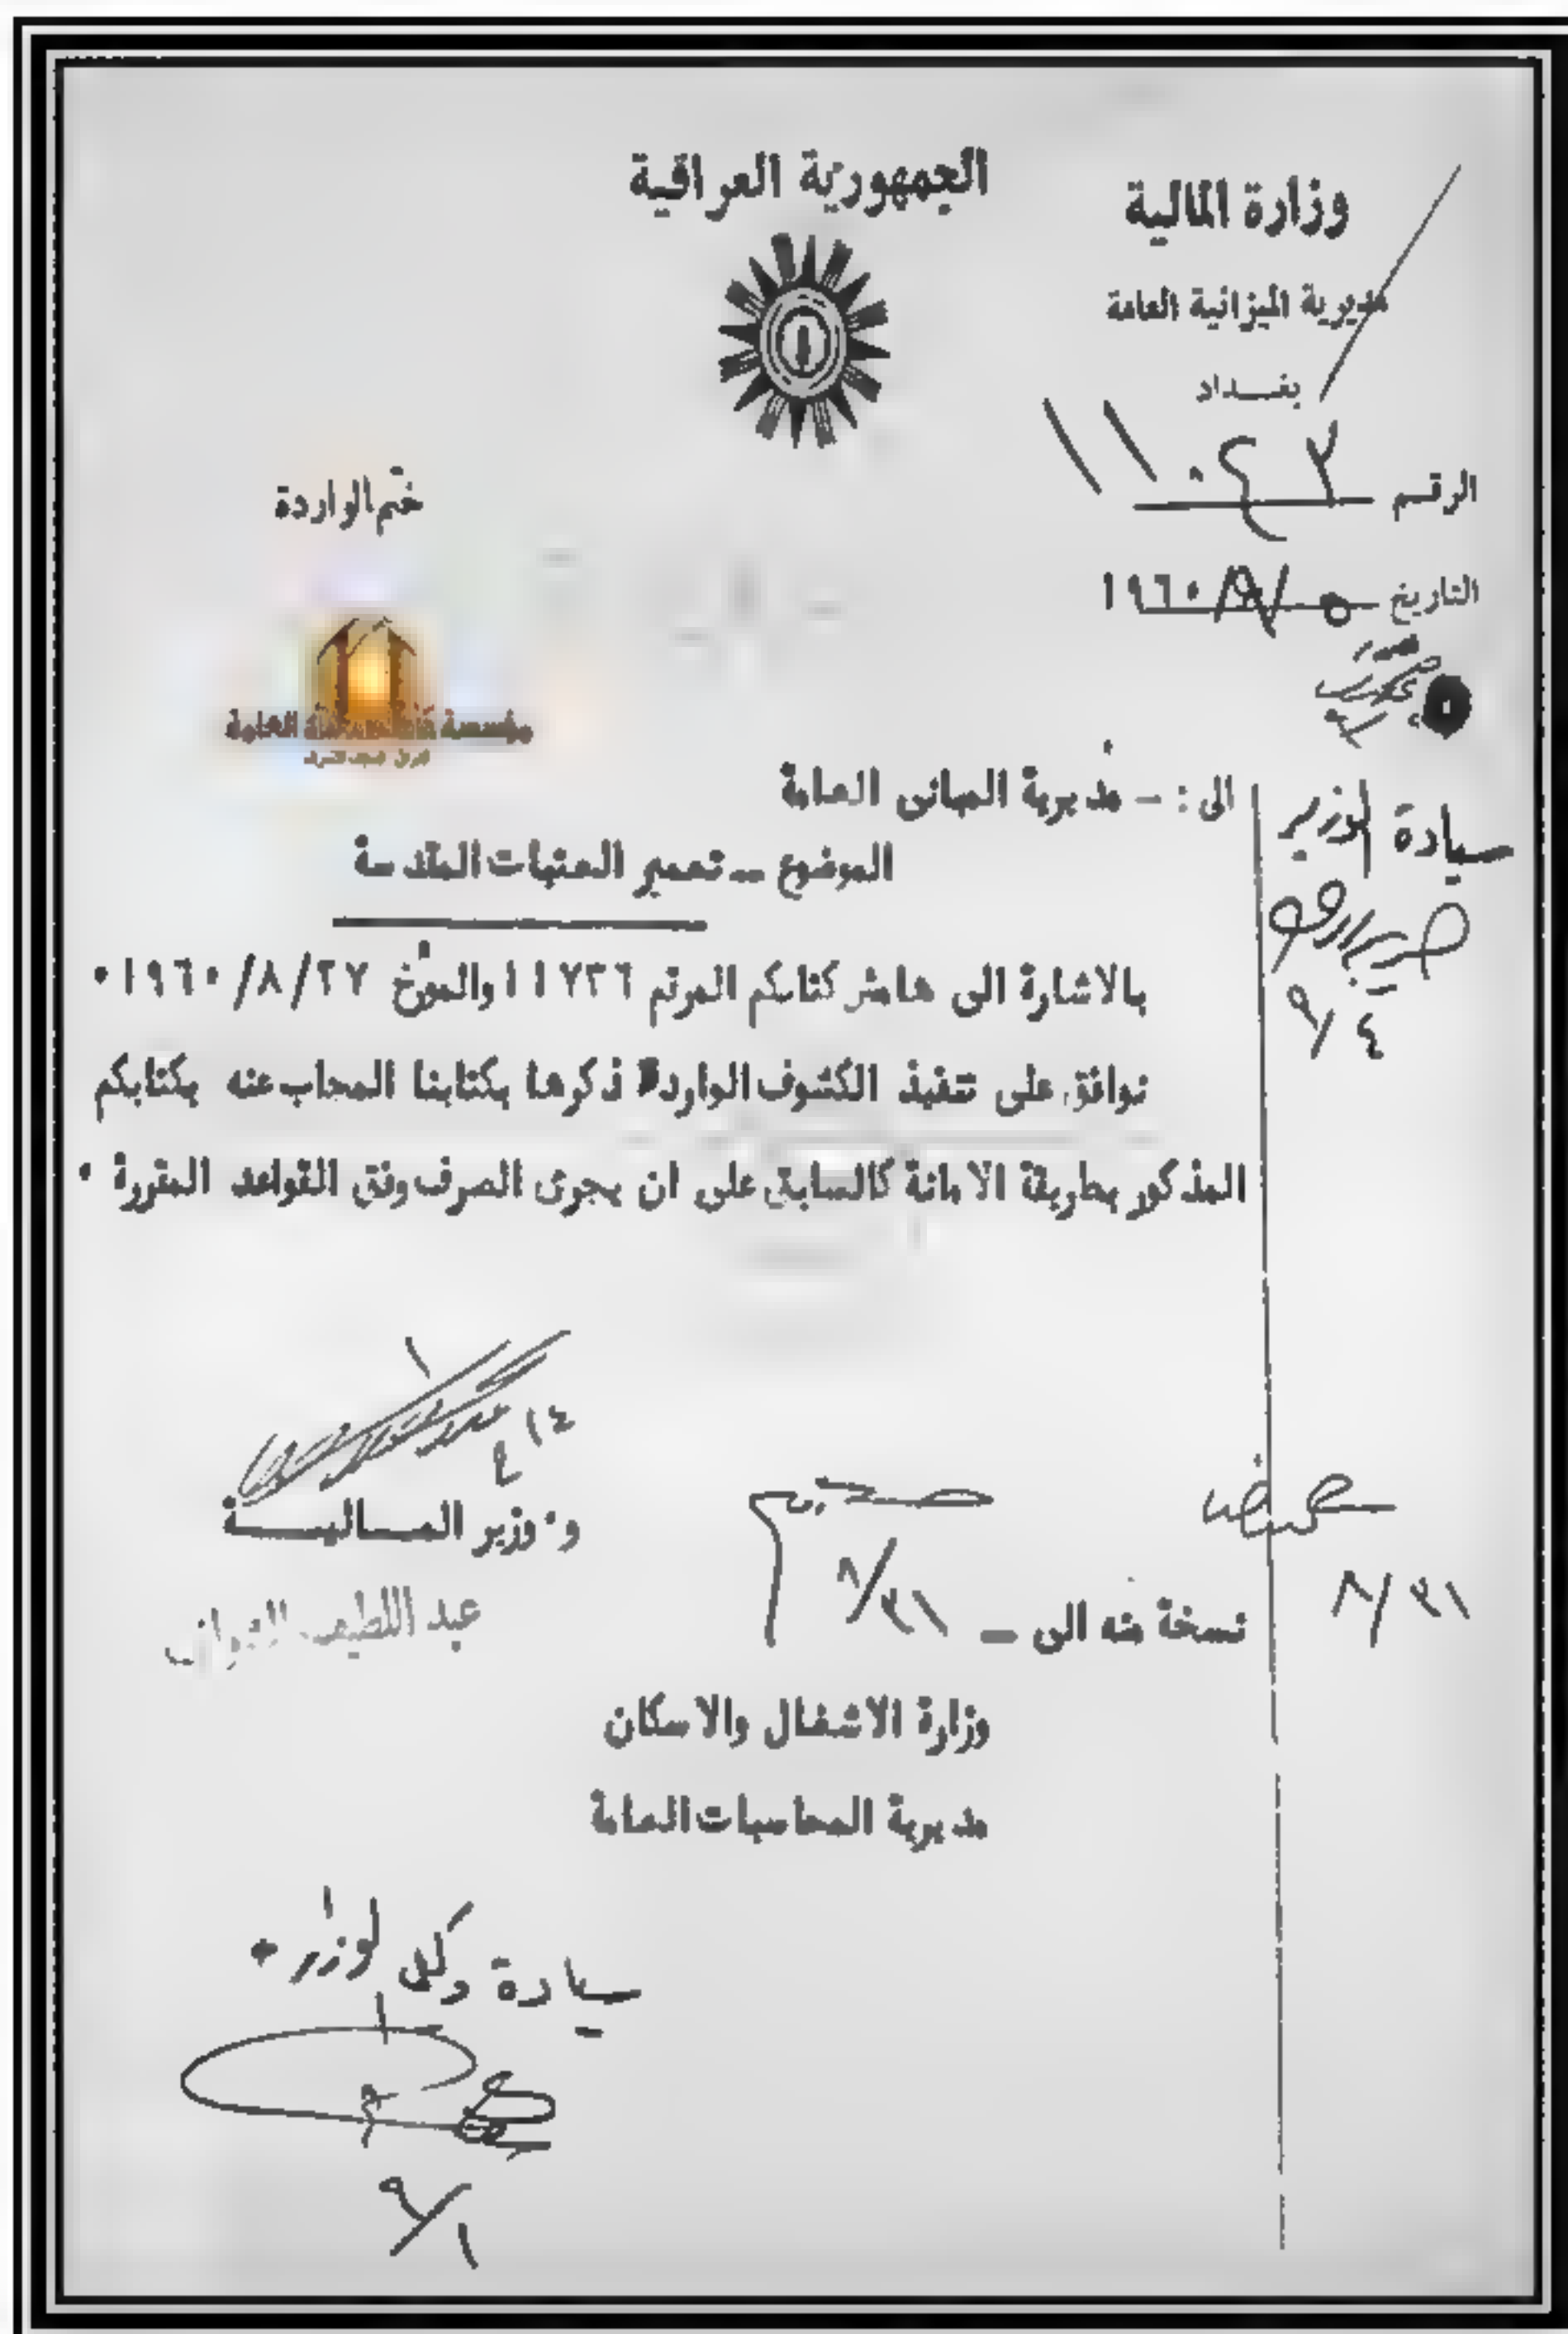 الجمهورية العراقية
وزارة المالية
مديرية الميزانية العامة
بغـــداد
الرقم ١١٠٤٣
التاريخ ٥/٩/١٩٦٠
ختم الواردة
مؤسسة العامة
الى : ـ مديرية المباني العامة
الموضوع ــ تعمير العتبات المقدسة
سيادة الوزير
٤/٩
بالاشارة الى هامش كتابكم المرقم ١١٧٣٦ والمؤرخ ٢٧/٨/١٩٦٠ ٠
نوافق على تنفيذ الكشوف الواردة ذكرها بكتابنا المجاب عنه بكتابكم
المذكور بطريقة الامانة كالسابق على ان يجرى الصرف وفق القواعد المقررة ٠
و٠ وزير المـــاليـــة
عبد اللطيف الشواف
٣١/٨
٣١/٨
نسخة منه الى ــ
وزارة الاشغال والاسكان
مديرية المحاسبات العامة
سيادة وكيل الوزير ٠
١/٩